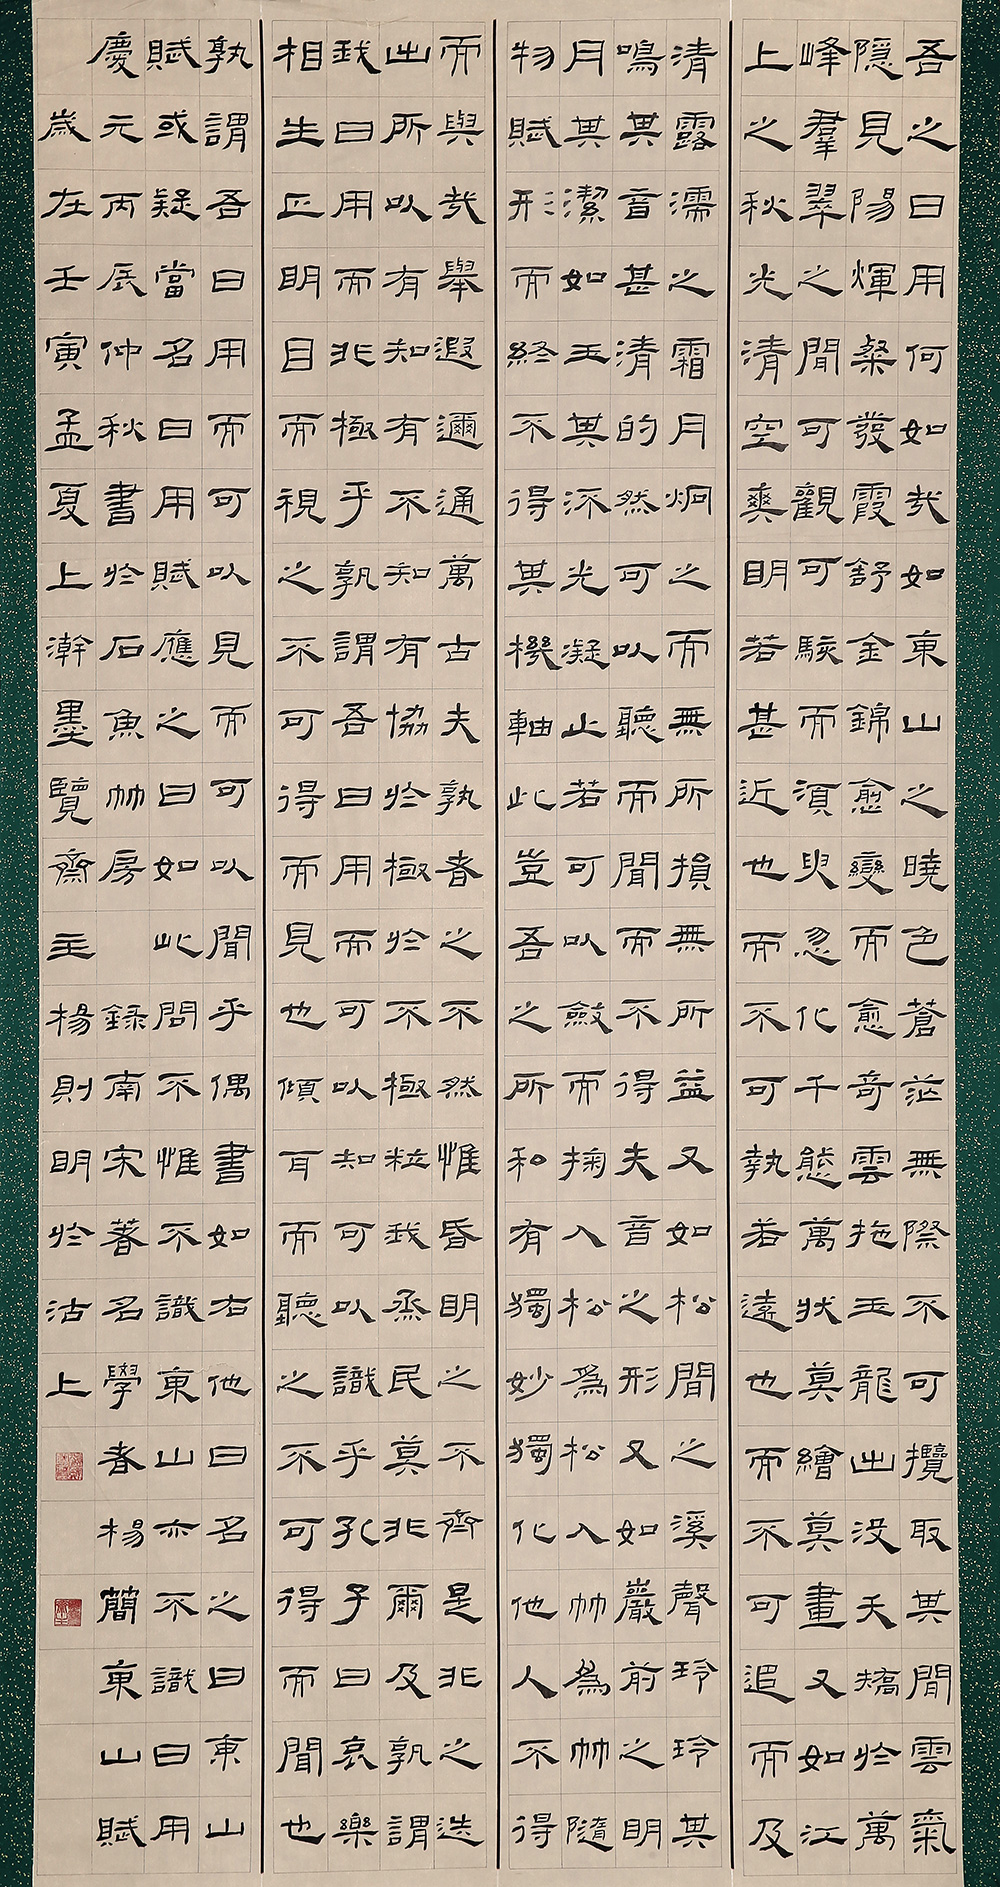 吾之日用何如哉如東山之曉色蒼茫無際不可攬取其間雲氣
隱見陽煇粲發霞舒金錦愈變而愈奇雲拖玉龍出没夭矯於萬
峰羣翠之間可觀可駭而湏臾忽化千態萬狀莫繪莫畫又如江
上之秋光清空爽明若甚近也而不可執若遠也而不可追而及
清露濡之霜月炯之而無所損無所益又如松間之溪聲玲玲其
鳴其音甚清的然可以聽而聞而不得夫音之形又如巖前之明
月其潔如玉其光凝止若可以斂而掬入松為松入竹為竹隨
物賦形而終不得其機軸此豈吾之所和有獨妙獨化他人不得
而與哉舉遐邇通萬古夫孰者之不然惟昏明之不齊是非之迭
出所以有知有不知有協於極於不極粒我烝民莫非爾及孰謂
我日用而非極乎孰謂吾日用而可以知可以識乎孔子曰哀樂
相生正明目而視之不可得而見也傾耳而聽之不可得而聞也
孰謂吾日用而可以見而可以聞乎偶書如右他日名之曰東山
賦或疑當名日用賦應之曰如此問不惟不識東山亦不識日用
慶元丙辰仲秋書於石魚竹房 錄南宋著名學者楊簡東山賦
歲在壬寅孟夏上澣墨覽齋主楊則明於沽上